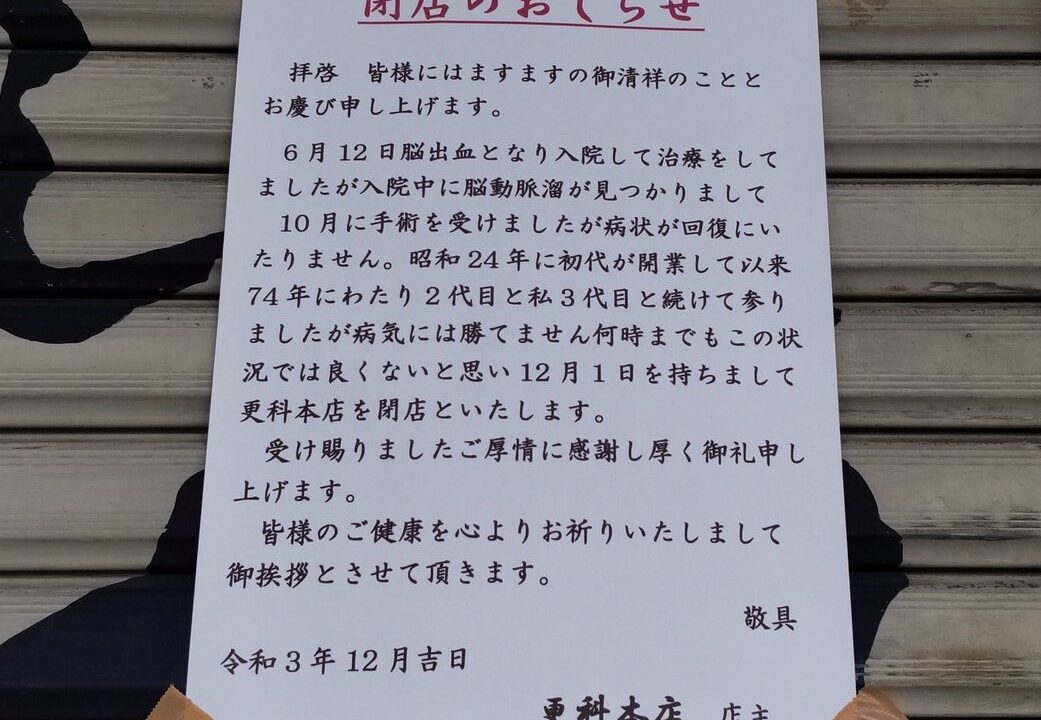 閉店のおしらせ
拝啓　皆様にはますますの御清祥のことと
お慶び申し上げます。
６月12日脳出血となり入院して治療をして
ましたが入院中に脳動脈溜が見つかりまして
10月に手術を受けましたが病状が回復にい
たりません。昭和24年に初代が開業して以来
74年にわたり２代目と私３代目と続けて参り
ましたが病気には勝てません何時までもこの状
況では良くないと思い12月１日を持ちまして
更科本店を閉店といたします。
受け賜りましたご厚情に感謝し厚く御礼申し
上げます。
皆様のご健康を心よりお祈りいたしまして
御挨拶とさせて頂きます。
敬具
令和３年12月吉日
更科本店　店主